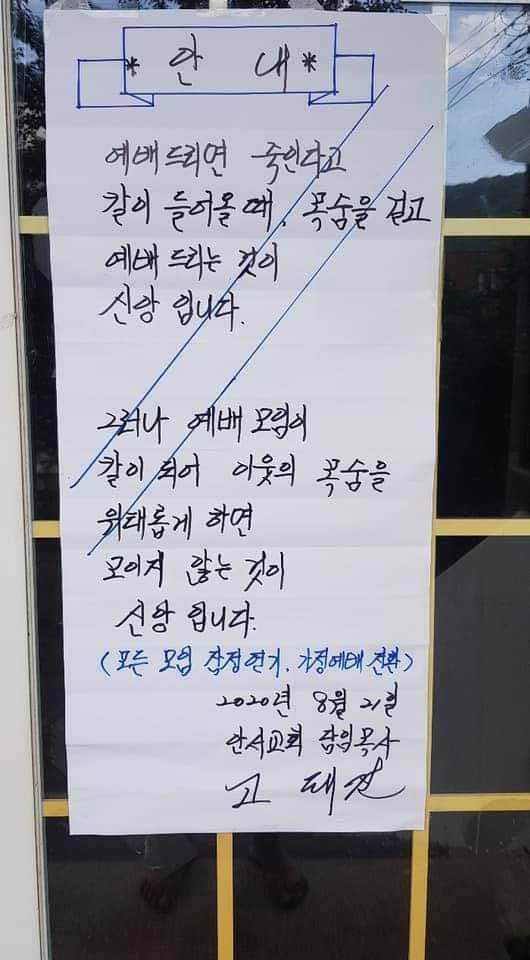 * 안 내 *
예배드리면 죽인다고
칼이 들어올 때, 목숨을 걸고
예배 드리는 것이
신앙 입니다.
그러나 예배 모임이
칼이 되어 이웃의 목숨을
위태롭게 하면
모이지 않는 것이
신앙 입니다.
(모든 모임 잠정연기. 가정예배 전환)
2020년 8월 21일
안서교회 담임목사
고 태진